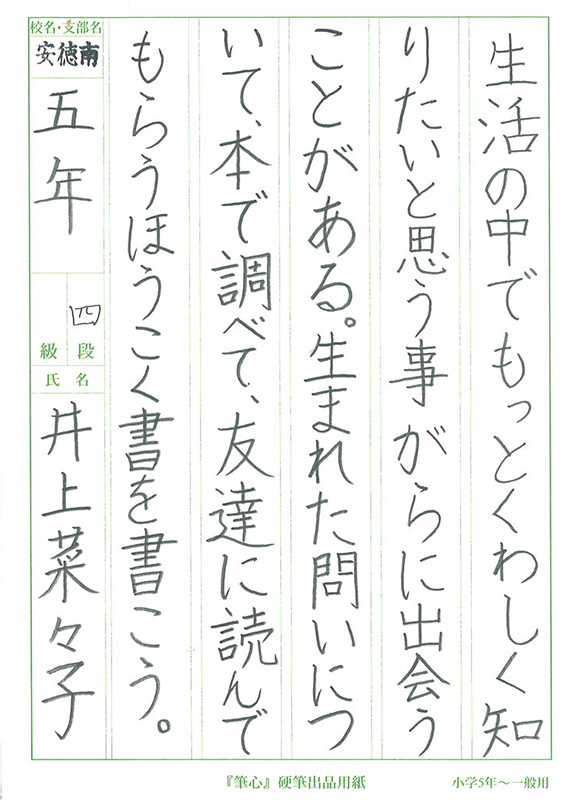 生活の中でもっとくわしく知
りたいと思う事がらに出会う
ことがある。生まれた問いにつ
いて、本で調べて、友達に読んで
もらうほうこく書を書こう。
校名・支部名
安徳南
五年
四
級 段
氏 名
井上菜々子
『筆心』硬筆出品用紙
小学5年～一般用